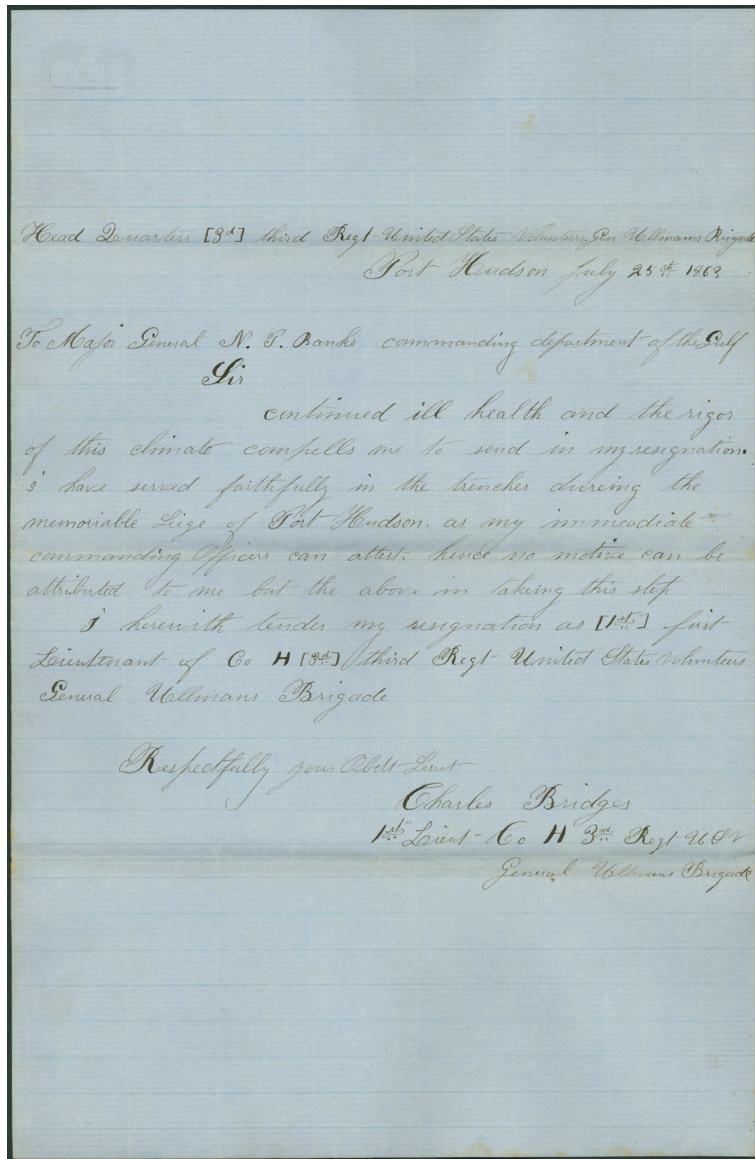 Head Quarters [3d] third Regt - United States Volunters. Gen Ullmans Brigade
Port Hudson July 25th 1863
To Major General N. P. Banks commanding department of the Gulf
Sir
continued ill health and the rigor
of this climate compells me to send in my resignation.
i have served faithfully in the trenches dureing the
memoriable Siege of Port Hudson. as my immediate
commanding Officers can attest. hence no motive can be
attributed to me but the above in taking this step
I herewith tender my resignation as [1st] first
Lieutenant of Co H [3d] third Regt United States Volunteers
General Ullmans Brigade
Respectfully your Obdt Servt
Charles Bridges
1st Lieut - Co H 3rd Regt U S V
General Ullmans Brigade